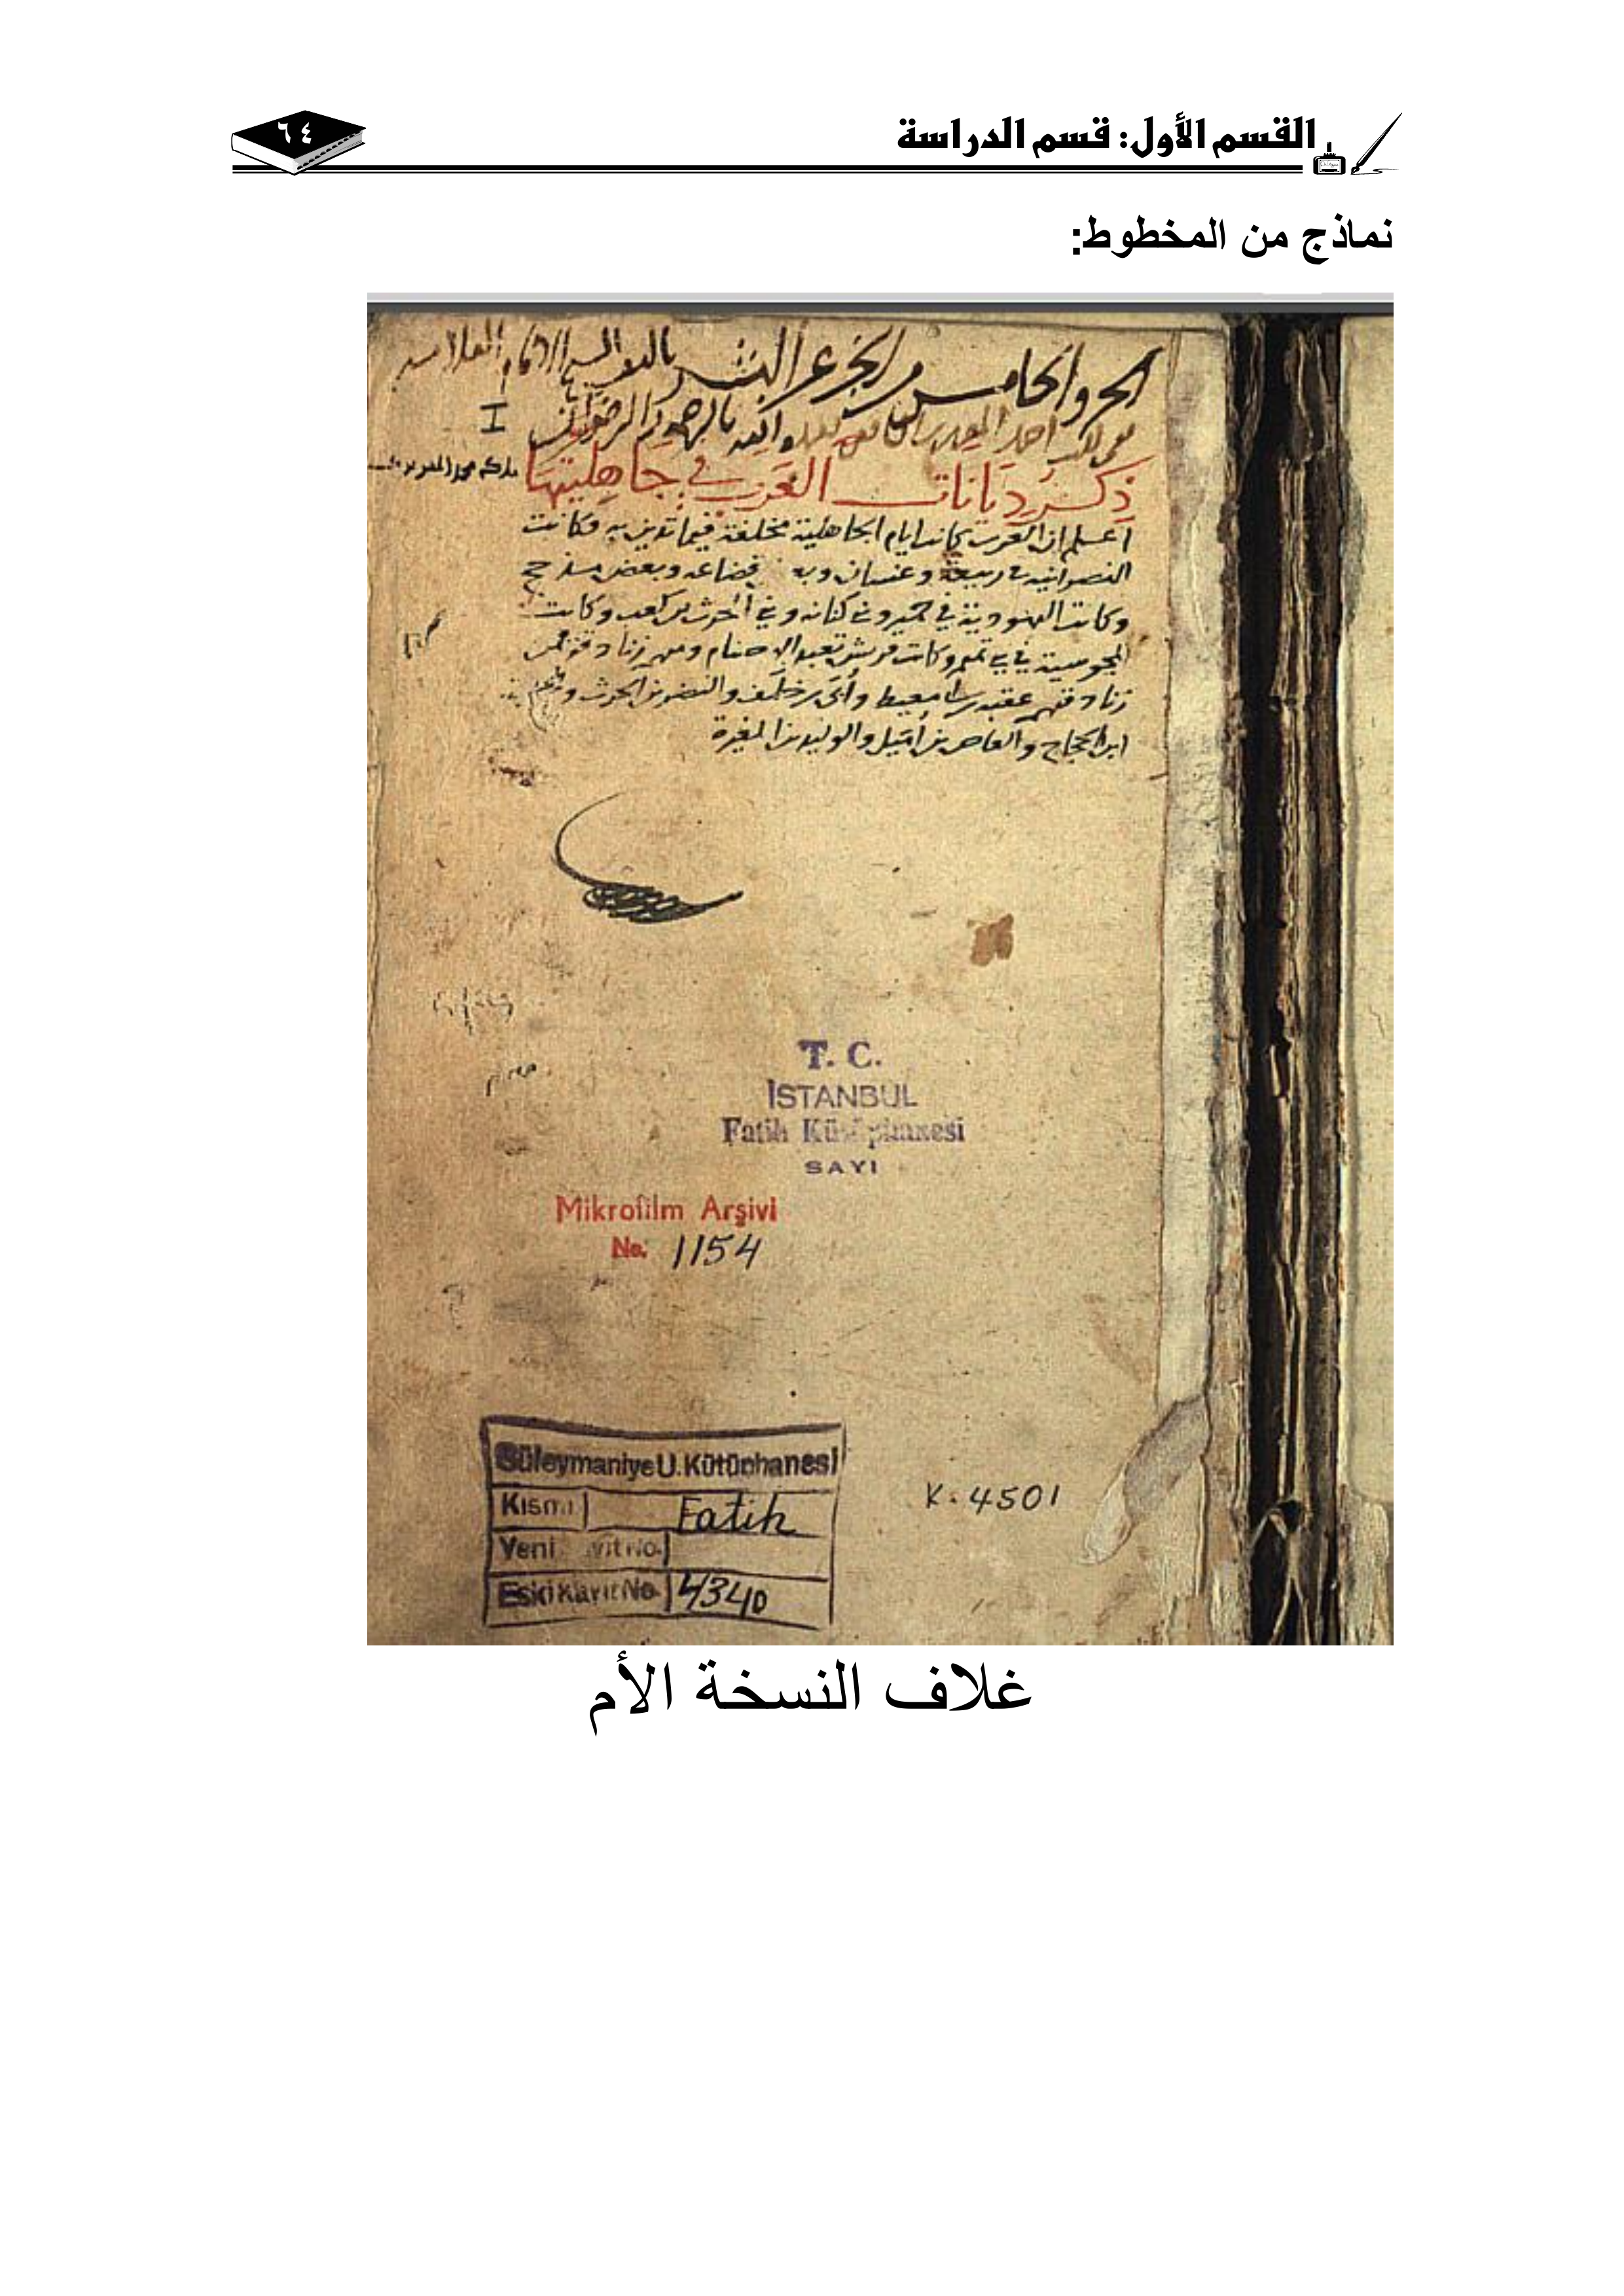 القسم الأول: قسم الدراسة
٦٤
نماذج من المخطوط:
الجزو الخامس من الخبر عن البشر تاليف الامام العلامه
I
ذكر ديانات العرب في جاهليتها
اعلم ان العرب كانت ايام الجاهلية مختلفة فيما تدين به فكانت
النصرانيه في ربيعة وغسان وبعض قضاعه وبعض مذحج
وكانت اليهودية في حمير وفي كنانه وفي الحرث بن كعب وكانت
المجوسية في بني تميم وكانت قريش تعبد الاصنام ومنهم زنادقة فمن
زنادقتهم عقبه بن ابي معيط وأبي بن خلف والنضر بن الحرث
ابن الحجاج والعاص بن وائل والوليد بن المغيرة
T. C.
İSTANBUL
Fatih Kütüphanesi
SAYI
Mikrofilm Arşivi
No. 1154
Süleymaniye U. Kütüphanesi
Kısmı Fatih
Yeni Kayıt No.
Eski Kayıt No. 4340
K. 4501
غلاف النسخة الأم